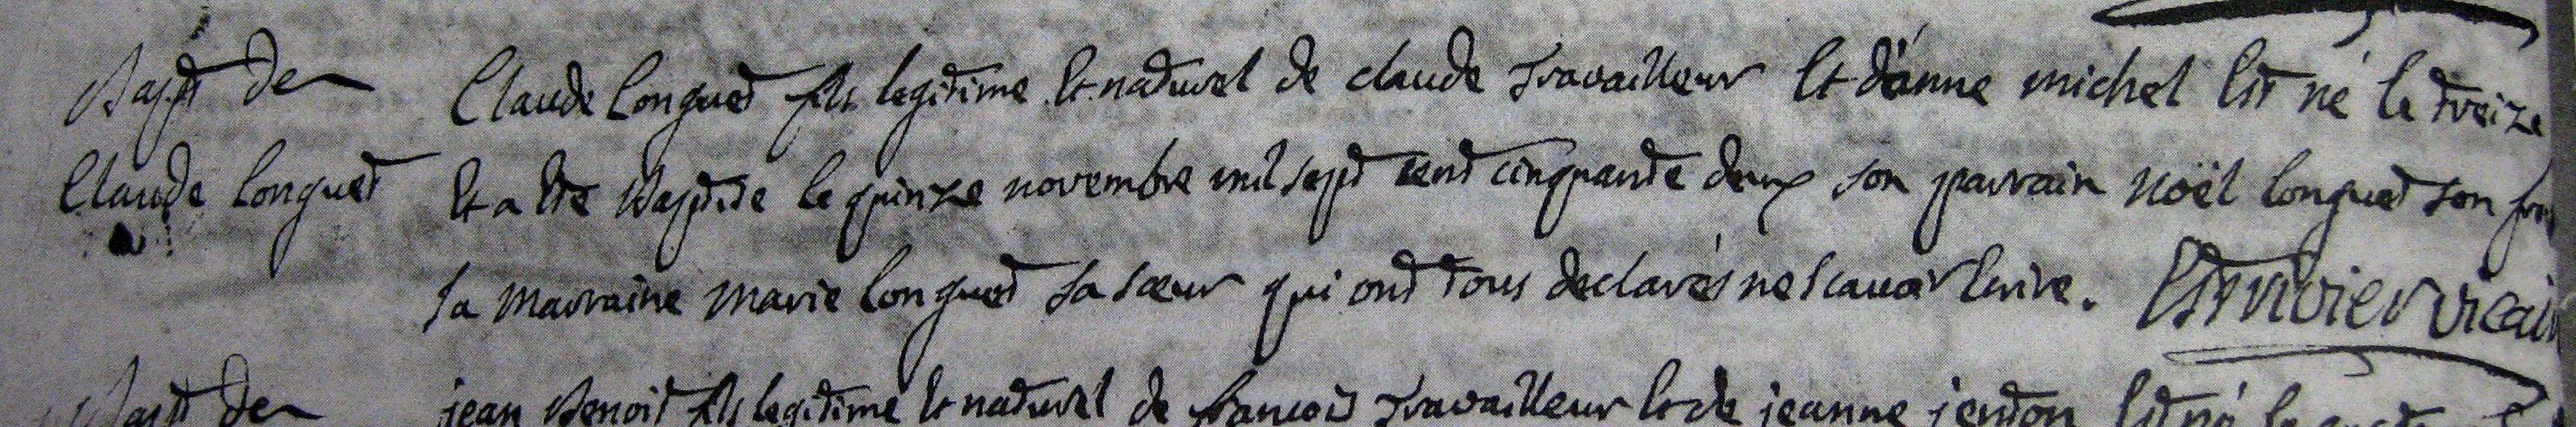 Bapt de
Claude Longuet
Claude Longuet fils legitime et naturel de claude travailleur et d'anne michel est né le treize
et a eté baptisé le quinze novembre mil sept cent cinquante deux son parrain noël longuet son
sa marraine marie longuet sa sœur qui ont tous declarés ne scavoir ecrire. vicai
Bapt de
jean benoit fils legitime et naturel de francois travailleur et de jeanne est né le